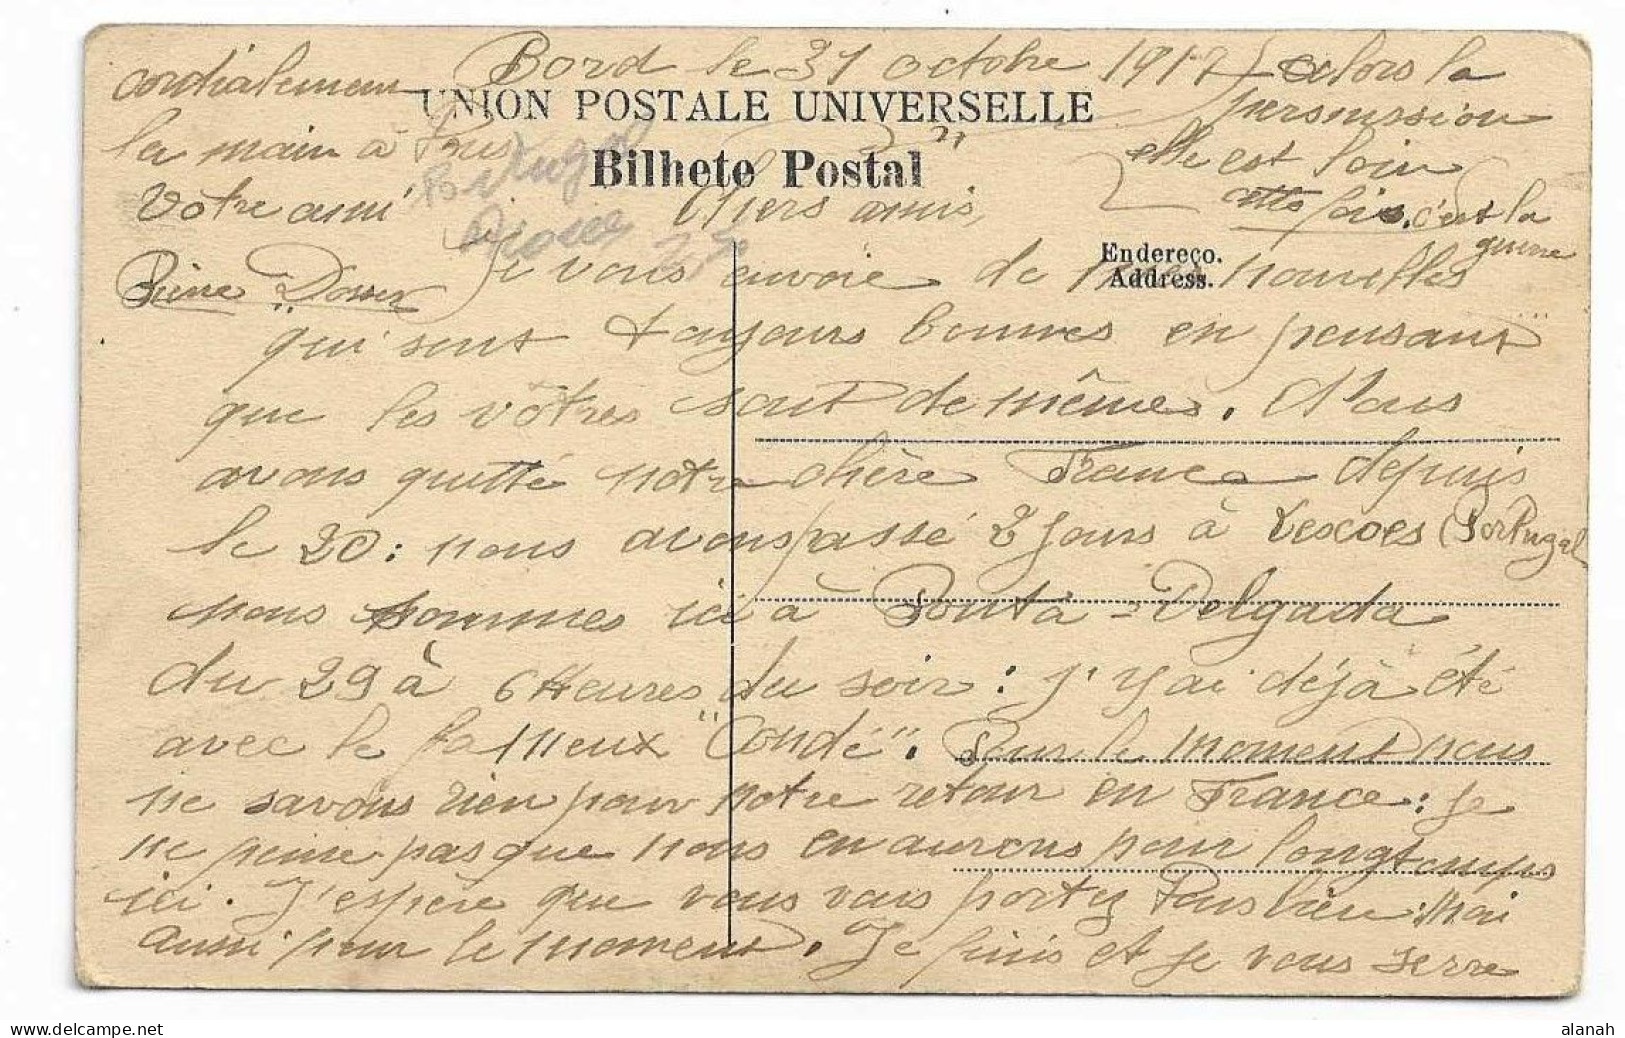 Bord le 31 octobre 1917
UNION POSTALE UNIVERSELLE
Bilhete Postal
Endereço.
Address.
Chers amis,
Je vous envoie de mes nouvelles
qui sont toujours bonnes en pensant
que les vôtres sont de mêmes. Nous
avons quitté notre chère France depuis
le 20: nous avons passé 2 jours à Lexoes (Portugal
nous sommes ici à Ponta-Delgada
du 29 à 6 Heures du soir: j'y ai déjà été
avec le fameux "Condé". Pour le moment nous
ne savons rien pour notre retour en France: je
ne pense pas que nous en aurons pour longtemps
ici. J'espère que vous vous portez tous bien: moi
aussi pour le moment. Je finis et je vous serre
cordialement
la main à tous
Votre ami
Pierre
alors la
permission
elle est loin
cette fois. c'est la
guerre
Portugal
alanah